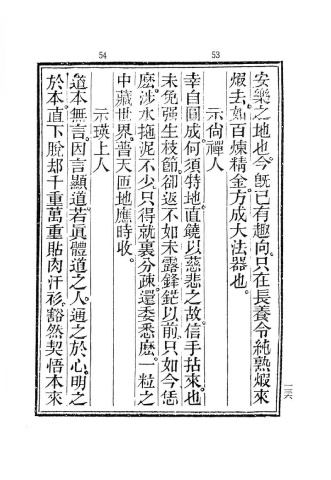 53
54
安樂之地也。今旣已有趣向。只在長養令純熟。煆來
煆去。如百煉精金。方成大法器也。
示尙禪人
幸自圓成。何須特地。直饒以慈悲之故。信手拈來。也
未免强生枝節。卻返不如未露鋒鋩以前。只如今恁
麽。涉水拖泥不少。只得就裏分疎。還委悉麽。一粒之
中藏世界。普天匝地應時收。
示瑛上人
道本無言。因言顯道。若眞體道之人。通之於心。明之
於本。直下脫却千重萬重貼肉汗衫。豁然契悟本來
一三六